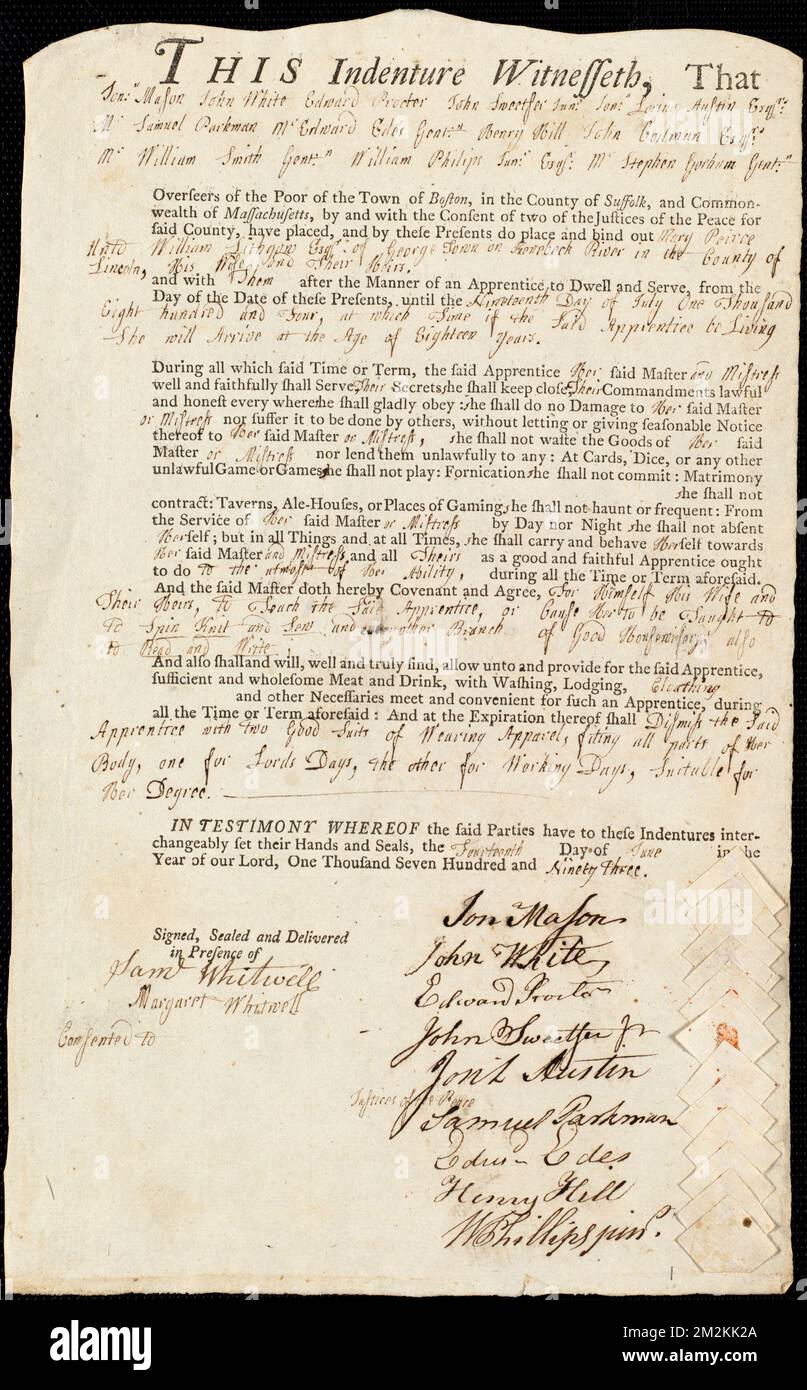 THIS Indenture Witnesseth, That
Jonn. Mason John White Edward Procter John Sweetser Junr. Jonn. Loring Austin Esqrs.
Mr Samuel Parkman Mr. Edward Edes Gentn. Henry Hill John Codman Esqrs.
Mr William Smith Gentn William Philips Junr Esqr. Mr Stephen Gorham Gentn
Overseers of the Poor of the Town of Boston, in the County of Suffolk, and Common-
wealth of Massachusetts, by and with the Consent of two of the Justices of the Peace for
said County, have placed, and by these Presents do place and bind out Mary Peirce
Unto William Lithgow Esqr. of George Town on Kenebeck River in the County of
Lincoln, His Wife and Their Heirs.
and with Them after the Manner of an Apprentice to Dwell and Serve, from the
Day of the Date of these Presents, until the Nineteenth Day of July One Thousand
Eight hundred and Four, at which Time if the Said Apprentice be Living
She will Arrive at the Age of Eighteen Years.
During all which said Time or Term, the said Apprentice Her said Master any Mistress
well and faithfully shall Serve, Their Secrets she shall keep close, Their Commandments lawful
and honest every where she shall gladly obey: she shall do no Damage to Her said Master
or Mistress nor suffer it to be done by others, without letting or giving seasonable Notice
thereof to Her said Master or Mistress, she shall not waste the Goods of Her said
Master or Mistress nor lend them unlawfully to any: At Cards, Dice, or any other
unlawful Game or Games she shall not play: Fornication she shall not commit: Matrimony
she shall not
contract: Taverns, Ale-Houses, or Places of Gaming she shall not haunt or frequent: From
the Service of Her said Master or Mistress by Day nor Night she shall not absent
Herself; but in all Things and at all Times, she shall carry and behave Herself towards
Her said Master and Mistress and all Theirs as a good and faithful Apprentice ought
to do to the utmost of Her Ability, during all the Time or Term aforesaid.
And the said Master doth hereby Covenant and Agree, For Himself His Wife and
Their Heirs, to Teach the Said Apprentice, or Cause Her to be Taught to
to Spin Knit and Sew and other Branch of Good Housewifery also
to Read and Write,
And also shall and will, well and truly find, allow unto and provide for the said Apprentice,
sufficient and wholesome Meat and Drink, with Washing, Lodging, Cloathing
and other Necessaries meet and convenient for such an Apprentice, during
all the Time or Term aforesaid: And at the Expiration thereof shall Dismiss the Said
Apprentice with two Good Suits of Wearing Apparel, fiting all parts of Her
Body, one for Lords Days, the other for Working Days, Suitable for
Her Degree.
IN TESTIMONY WHEREOF the said Parties have to these Indentures inter-
changeably set their Hands and Seals, the Fourteenth Day of June in the
Year of our Lord, One Thousand Seven Hundred and Ninety three.
Signed, Sealed and Delivered
in Presence of
Saml Whitwell
Margaret Whitwell
Consented to
Justices of the Peace
Jonn Mason
John White
Edward Procter
John Sweetser Jr
Jon L Austin
Samuel Parkman
Edwd Edes
Henry Hill
W Phillips junr.
alamy
Image ID: 2M2KK2A
www.alamy.com